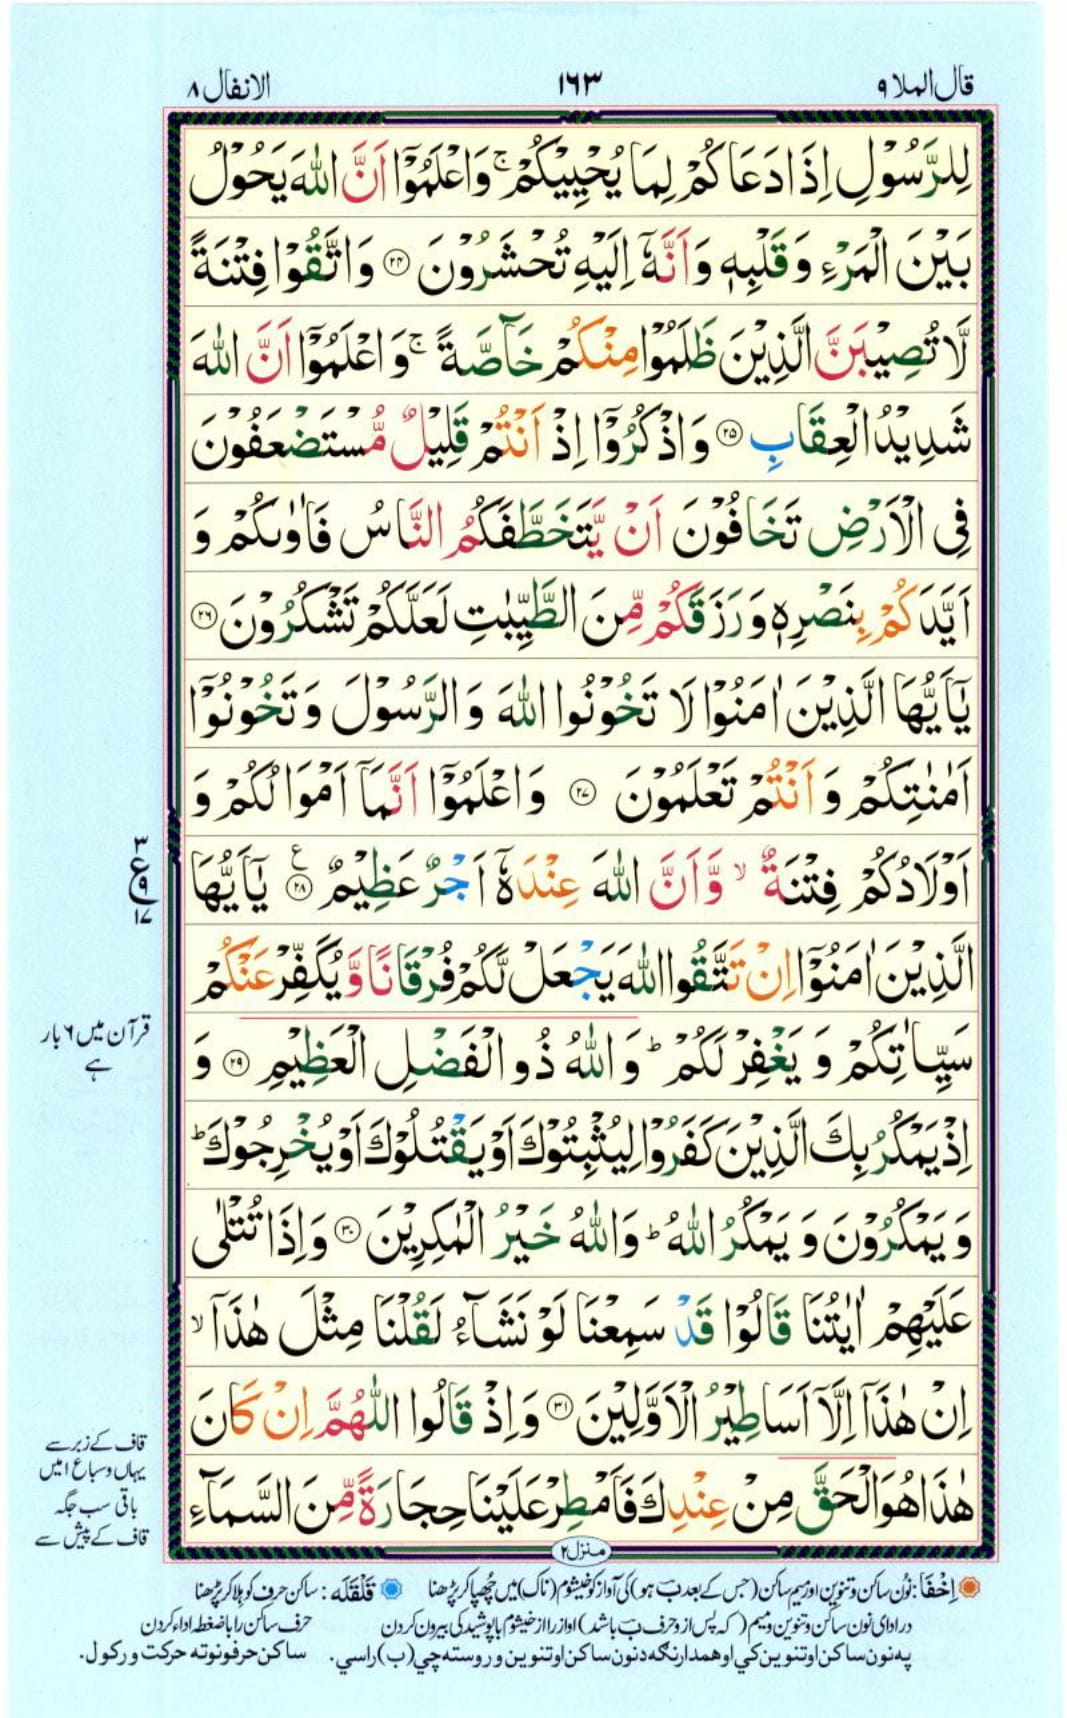 قال الملا ۹
۱۶۳
الانفال ۸
لِلرَّسُوْلِ اِذَا دَعَاكُمْ لِمَا يُحْيِيْكُمْ ۚ وَاعْلَمُوْٓا اَنَّ اللّٰهَ يَحُوْلُ
بَيْنَ الْمَرْءِ وَقَلْبِهٖ وَاَنَّهٗٓ اِلَيْهِ تُحْشَرُوْنَ ۲۴ وَاتَّقُوْا فِتْنَةً
لَّا تُصِيْبَنَّ الَّذِيْنَ ظَلَمُوْا مِنْكُمْ خَآصَّةً ۚ وَاعْلَمُوْٓا اَنَّ اللّٰهَ
شَدِيْدُ الْعِقَابِ ۲۵ وَاذْكُرُوْٓا اِذْ اَنْتُمْ قَلِيْلٌ مُّسْتَضْعَفُوْنَ
فِى الْاَرْضِ تَخَافُوْنَ اَنْ يَّتَخَطَّفَكُمُ النَّاسُ فَاٰوٰىكُمْ وَ
اَيَّدَكُمْ بِنَصْرِهٖ وَرَزَقَكُمْ مِّنَ الطَّيِّبٰتِ لَعَلَّكُمْ تَشْكُرُوْنَ ۲۶
يٰٓاَيُّهَا الَّذِيْنَ اٰمَنُوْا لَا تَخُوْنُوا اللّٰهَ وَالرَّسُوْلَ وَتَخُوْنُوْٓا
اَمٰنٰتِكُمْ وَاَنْتُمْ تَعْلَمُوْنَ ۲۷ وَاعْلَمُوْٓا اَنَّمَآ اَمْوَالُكُمْ وَ
اَوْلَادُكُمْ فِتْنَةٌ ۙ وَّاَنَّ اللّٰهَ عِنْدَهٗٓ اَجْرٌ عَظِيْمٌ ۲۸ ع يٰٓاَيُّهَا
۳
ع ۹
۱۷
الَّذِيْنَ اٰمَنُوْٓا اِنْ تَتَّقُوا اللّٰهَ يَجْعَلْ لَّكُمْ فُرْقَانًا وَّيُكَفِّرْ عَنْكُمْ
سَيِّاٰتِكُمْ وَيَغْفِرْ لَكُمْ ؕ وَاللّٰهُ ذُو الْفَضْلِ الْعَظِيْمِ ۲۹ وَ
قرآن میں ۶ بار
ہے
اِذْ يَمْكُرُ بِكَ الَّذِيْنَ كَفَرُوْا لِيُثْبِتُوْكَ اَوْ يَقْتُلُوْكَ اَوْ يُخْرِجُوْكَ ؕ
وَيَمْكُرُوْنَ وَيَمْكُرُ اللّٰهُ ؕ وَاللّٰهُ خَيْرُ الْمٰكِرِيْنَ ۳۰ وَاِذَا تُتْلٰى
عَلَيْهِمْ اٰيٰتُنَا قَالُوْا قَدْ سَمِعْنَا لَوْ نَشَآءُ لَقُلْنَا مِثْلَ هٰذَآ ۙ
اِنْ هٰذَآ اِلَّآ اَسَاطِيْرُ الْاَوَّلِيْنَ ۳۱ وَاِذْ قَالُوا اللّٰهُمَّ اِنْ كَانَ
هٰذَا هُوَ الْحَقَّ مِنْ عِنْدِكَ فَاَمْطِرْ عَلَيْنَا حِجَارَةً مِّنَ السَّمَآءِ
قاف کے زبر سے
یہاں وسباع ۱ میں
باقی سب جگہ
قاف کے پیش سے
منزل ۲
اِخْفَا: نُون ساکن و تنوین اور میم ساکن (جس کے بعد بَ ہو) کی آواز کو خیشوم (ناک) میں چُھپا کر پڑھنا قَلْقَلَه : ساکن حرف کو ہلا کر پڑھنا
در ادای نون ساکن و تنوین و میم (که پس از و حرف بَ باشد) اواز را از خیشوم با پوشیدگی بیرون کردن حرف ساکن را با ضغطه اداء کردن
په نون ساکن او تنوین کي او همدارنګه د نون ساکن او تنوین و روسته چي (ب) راسي. ساکن حرفو نو ته حرکت ورکول.